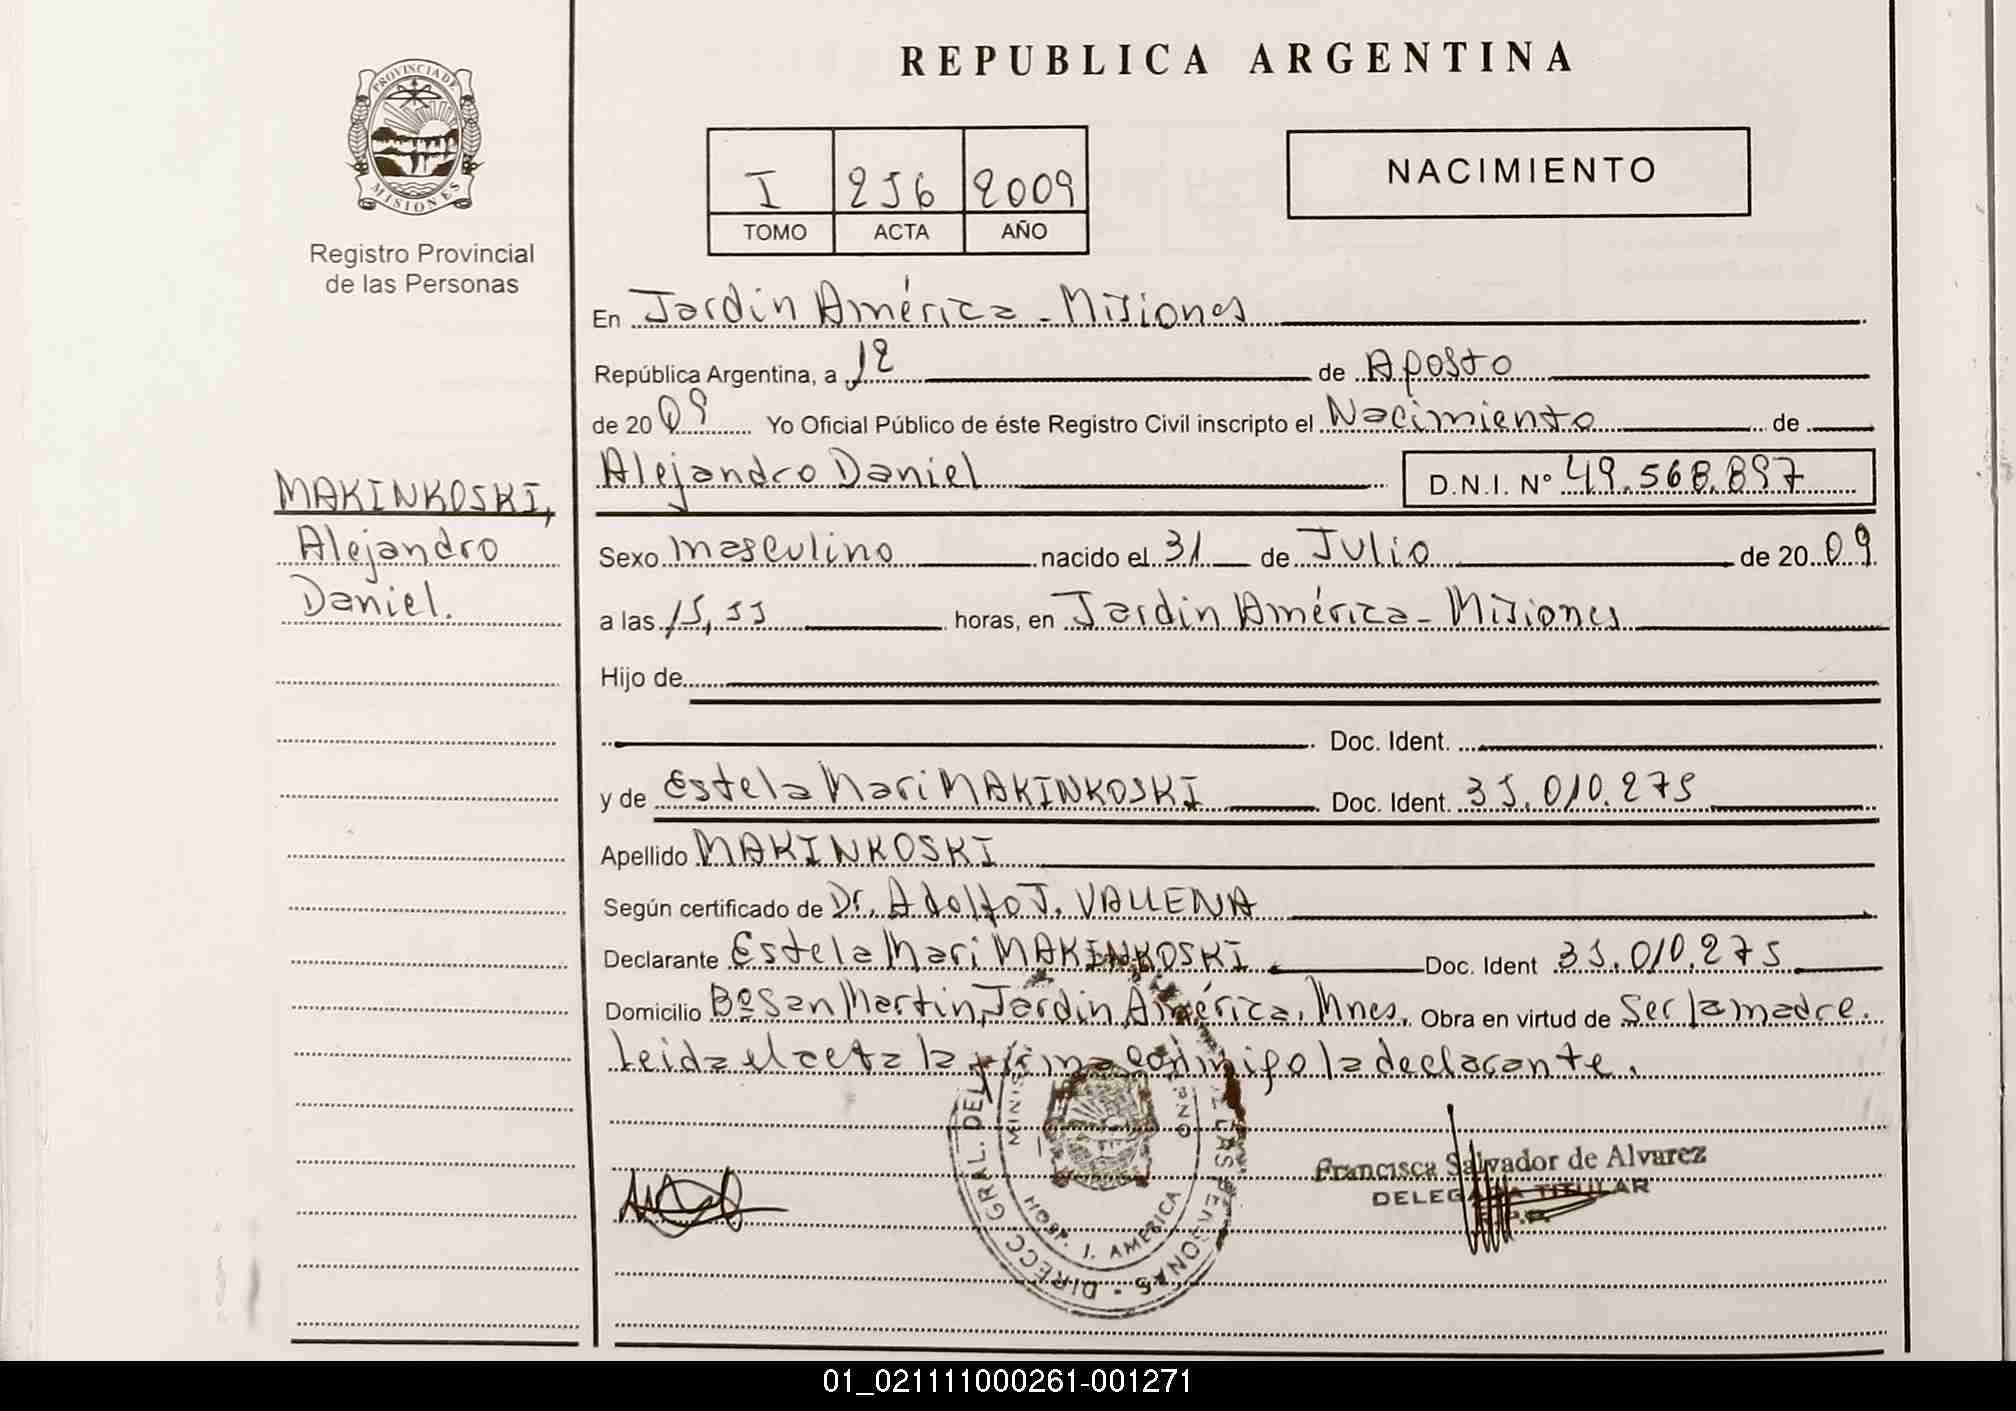 PROVINCIA DE
MISIONES
Registro Provincial
de las Personas
MAKINKOSKI,
Alejandro
Daniel.
REPUBLICA ARGENTINA
I 256 2009
TOMO ACTA AÑO
NACIMIENTO
En Jardín América - Misiones
República Argentina, a 12 de Agosto
de 2009 Yo Oficial Público de éste Registro Civil inscripto el Nacimiento de
Alejandro Daniel D.N.I. Nº 49.568.897
Sexo masculino nacido el 31 de Julio de 2009
a las 15,55 horas, en Jardín América - Misiones
Hijo de
Doc. Ident.
y de Estela Mari MAKINKOSKI Doc. Ident. 35.010.275
Apellido MAKINKOSKI
Según certificado de Dr. Adolfo J. VALLENA
Declarante Estela Mari MAKINKOSKI Doc. Ident 35.010.275
Domicilio Bº San Martin, Jardín América, Mnes. Obra en virtud de Ser la madre.
Leida el acta la firma conmigo la declarante.
DIRECC GRAL. DEL LAS PERSONAS
HOSP. J. AMERICA
Francisca Salvador de Alvarez
DELEGADA TITULAR
01_021111000261-001271